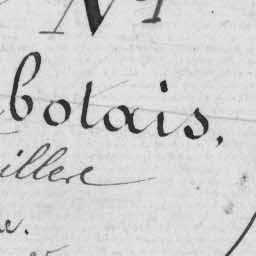 N
botais,
illere
e.